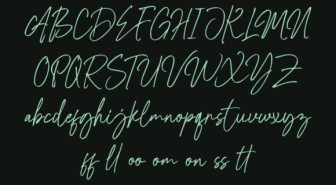 ABCDEFGHIJKLMN
OPQRSTUVWXYZ
abcdefghijklmnopqrstuvwxyz
ff ll oo om on ss tt